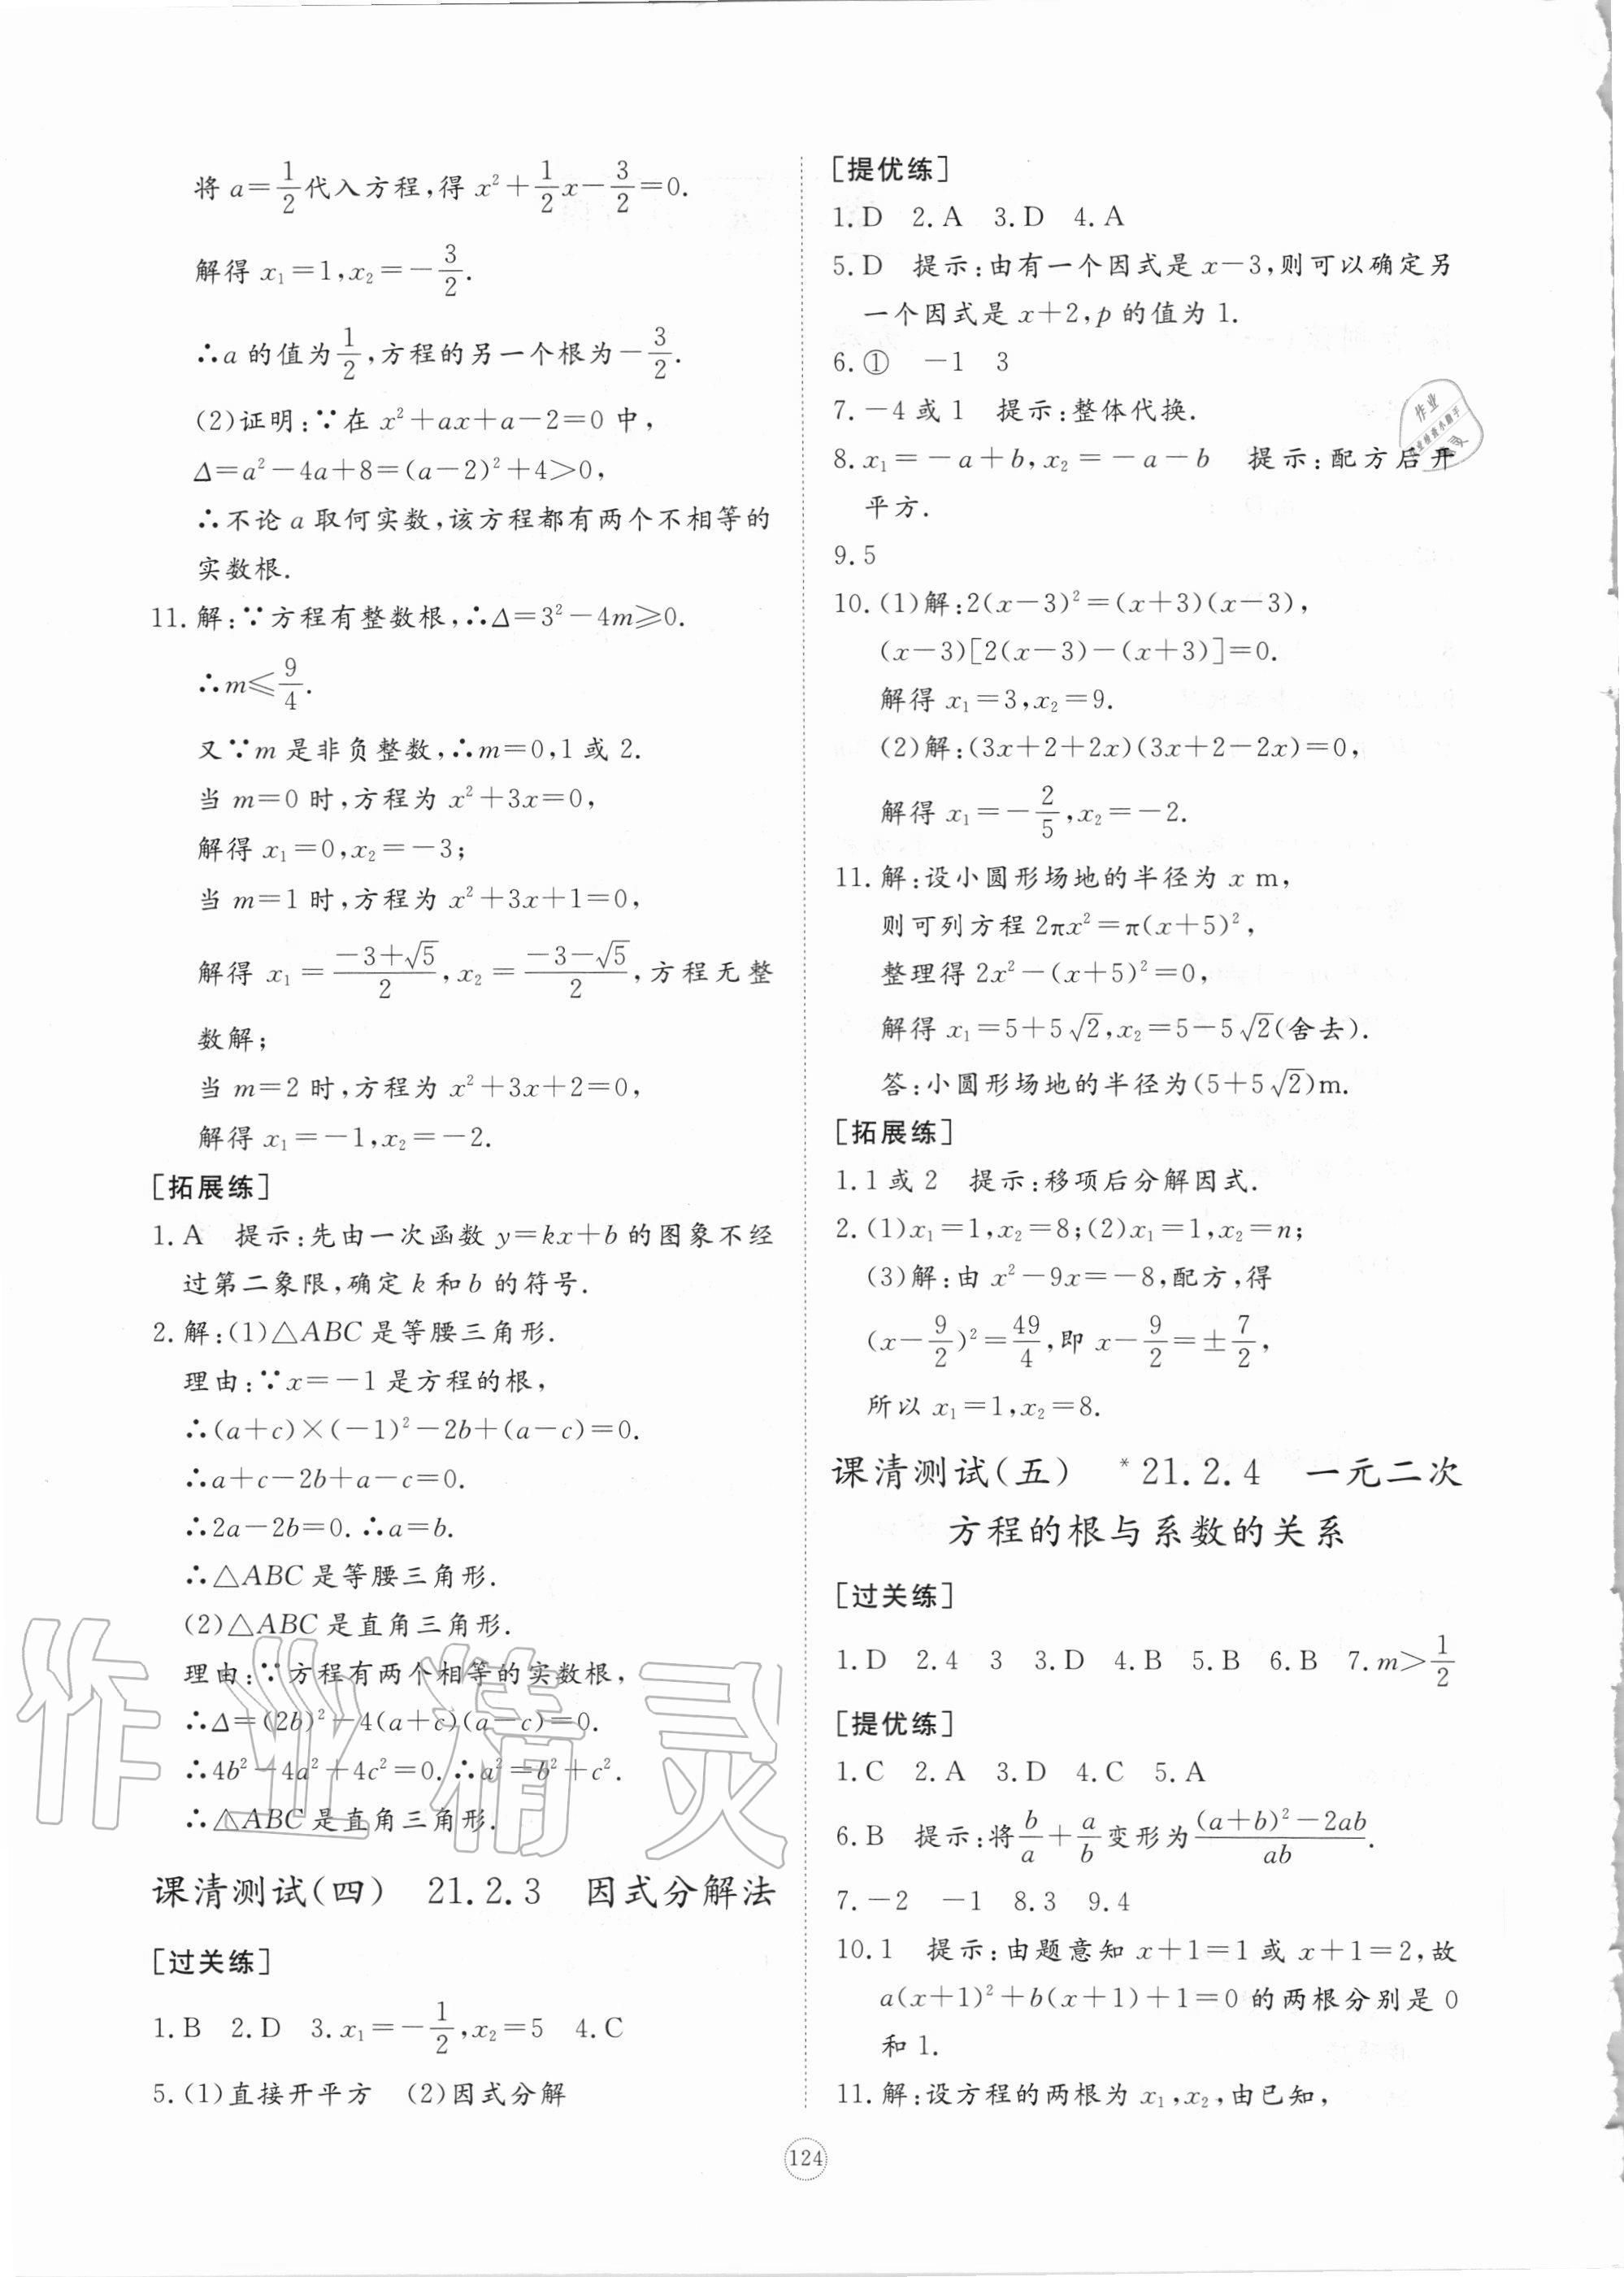 将 a=1/2代入方程,得 x²+1/2x-3/2=0.
解得 x₁=1,x₂=-3/2.
∴a 的值为1/2,方程的另一个根为-3/2.
(2)证明:∵在 x²+ax+a-2=0 中,
Δ=a²-4a+8=(a-2)²+4>0,
∴不论 a 取何实数,该方程都有两个不相等的
实数根.
11. 解:∵方程有整数根,∴Δ=3²-4m≥0.
∴m≤9/4.
又∵m 是非负整数,∴m=0,1 或 2.
当 m=0 时,方程为 x²+3x=0,
解得 x₁=0,x₂=-3;
当 m=1 时,方程为 x²+3x+1=0,
解得 x₁=(-3+√5)/2,x₂=(-3-√5)/2,方程无整
数解;
当 m=2 时,方程为 x²+3x+2=0,
解得 x₁=-1,x₂=-2.
[拓展练]
1. A 提示:先由一次函数 y=kx+b 的图象不经
过第二象限,确定 k 和 b 的符号.
2. 解:(1)△ABC 是等腰三角形.
理由:∵x=-1 是方程的根,
∴(a+c)×(-1)²-2b+(a-c)=0.
∴a+c-2b+a-c=0.
∴2a-2b=0.∴a=b.
∴△ABC 是等腰三角形.
(2)△ABC 是直角三角形.
理由:∵方程有两个相等的实数根,
∴Δ=(2b)²-4(a+c)(a-c)=0.
∴4b²-4a²+4c²=0.∴a²=b²+c².
∴△ABC 是直角三角形.
课清测试(四) 21.2.3 因式分解法
[过关练]
1. B 2. D 3. x₁=-1/2,x₂=5 4. C
5. (1)直接开平方 (2)因式分解
[提优练]
1. D 2. A 3. D 4. A
5. D 提示:由有一个因式是 x-3,则可以确定另
一个因式是 x+2,p 的值为 1.
6. ① -1 3
7. -4 或 1 提示:整体代换.
8. x₁=-a+b,x₂=-a-b 提示:配方后开
平方.
9. 5
10. (1)解:2(x-3)²=(x+3)(x-3),
(x-3)[2(x-3)-(x+3)]=0.
解得 x₁=3,x₂=9.
(2)解:(3x+2+2x)(3x+2-2x)=0,
解得 x₁=-2/5,x₂=-2.
11. 解:设小圆形场地的半径为 x m,
则可列方程 2πx²=π(x+5)²,
整理得 2x²-(x+5)²=0,
解得 x₁=5+5√2,x₂=5-5√2(舍去).
答:小圆形场地的半径为(5+5√2)m.
[拓展练]
1. 1 或 2 提示:移项后分解因式.
2. (1)x₁=1,x₂=8;(2)x₁=1,x₂=n;
(3)解:由 x²-9x=-8,配方,得
(x-9/2)²=49/4,即 x-9/2=±7/2,
所以 x₁=1,x₂=8.
课清测试(五) *21.2.4 一元二次
方程的根与系数的关系
[过关练]
1. D 2. 4 3 3. D 4. B 5. B 6. B 7. m>1/2
[提优练]
1. C 2. A 3. D 4. C 5. A
6. B 提示:将b/a+a/b变形为((a+b)²-2ab)/ab.
7. -2 -1 8. 3 9. 4
10. 1 提示:由题意知 x+1=1 或 x+1=2,故
a(x+1)²+b(x+1)+1=0 的两根分别是 0
和 1.
11. 解:设方程的两根为 x₁,x₂,由已知,
124
作业精灵